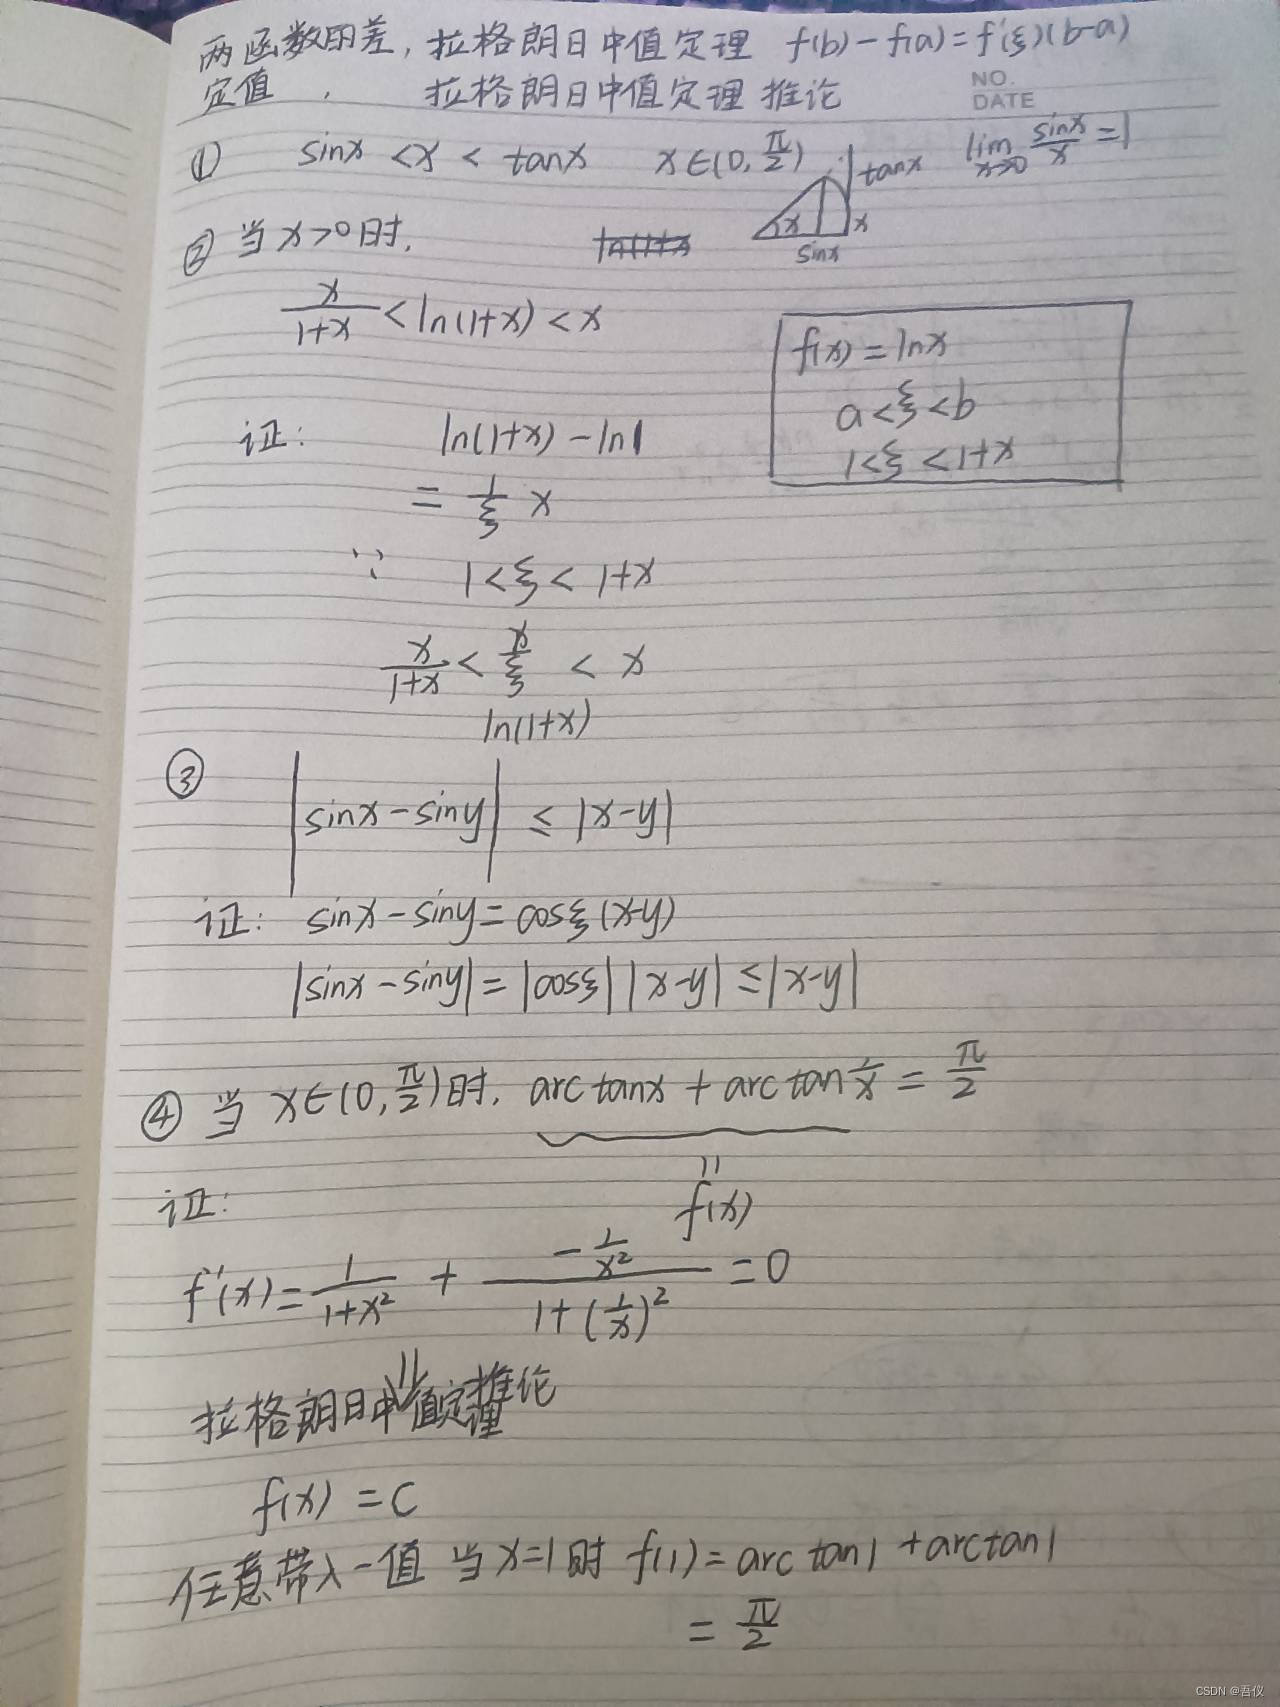 两函数的差, 拉格朗日中值定理 f(b)-f(a)=f'(ξ)(b-a)
定值 , 拉格朗日中值定理 推论
NO.
DATE
① sinx < x < tanx x∈(0, π/2) lim x→0 sinx/x = 1
tanx
x x
sinx
② 当 x>0时,
x/(1+x) < ln(1+x) < x
f(x) = lnx
a<ξ<b
1<ξ<1+x
证: ln(1+x) - ln1
= 1/ξ x
∵ 1<ξ< 1+x
x/(1+x) < x/ξ < x
ln(1+x)
③ |sinx-siny| ≤ |x-y|
证: sinx-siny=cosξ(x-y)
|sinx-siny|=|cosξ||x-y|≤|x-y|
④ 当 x∈(0, π/2)时, arctanx + arctan 1/x = π/2
证:
f(x)
f'(x)= 1/(1+x²) + (-1/x²)/(1+(1/x)²) =0
拉格朗日中值定理推论
f(x) =C
任意带入一值 当x=1时 f(1)=arctan1+arctan1
= π/2
CSDN @吾仪